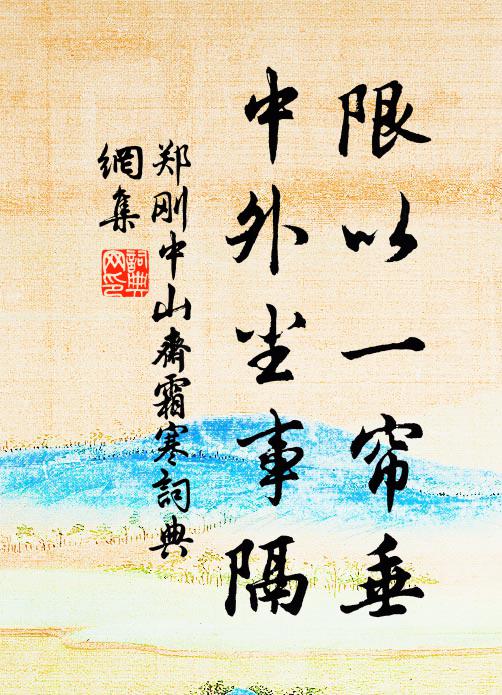 限以一帘垂
中外尘事隔
郑刚中山斋霜寒詞典
網集
詞典网印